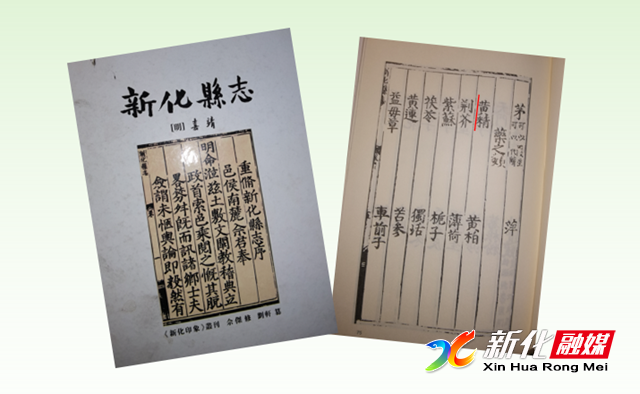 新化縣志
[明] 嘉靖
重脩新化縣志序
邑侯南麓余君奉
明命涖茲土敷文闡教稽典立
政首索邑乘閱之慨其脫
畧芬舛既而訊諸鄉士夫
僉謂未愜輿論即毅然有
《新化印象》叢刊 余傑 修 劉軒 纂
茅 萍
藥之類
黃精
荊芥 黃柏
紫蘇 薄荷
茯苓 梔子
黃連 獨活
益母草 苦參
車前子
新化融媒
Xin Hua Rong Mei